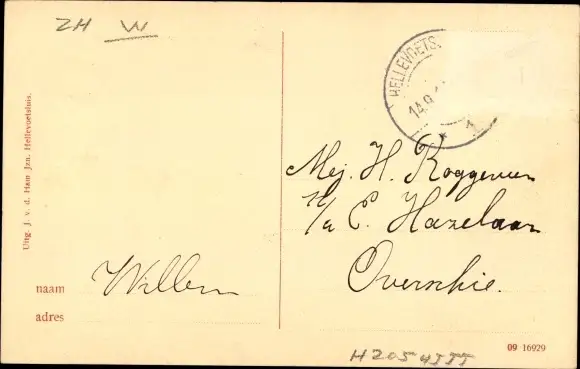 ZH W
Uitg. J. v. d. Ham Jzn. Hellevoetsluis.
HELLEVOETS
14.9
Mej. H. Roggeveen
P/a E. Hazelaar
Overschie.
Willem
naam
adres
09 16929
H205